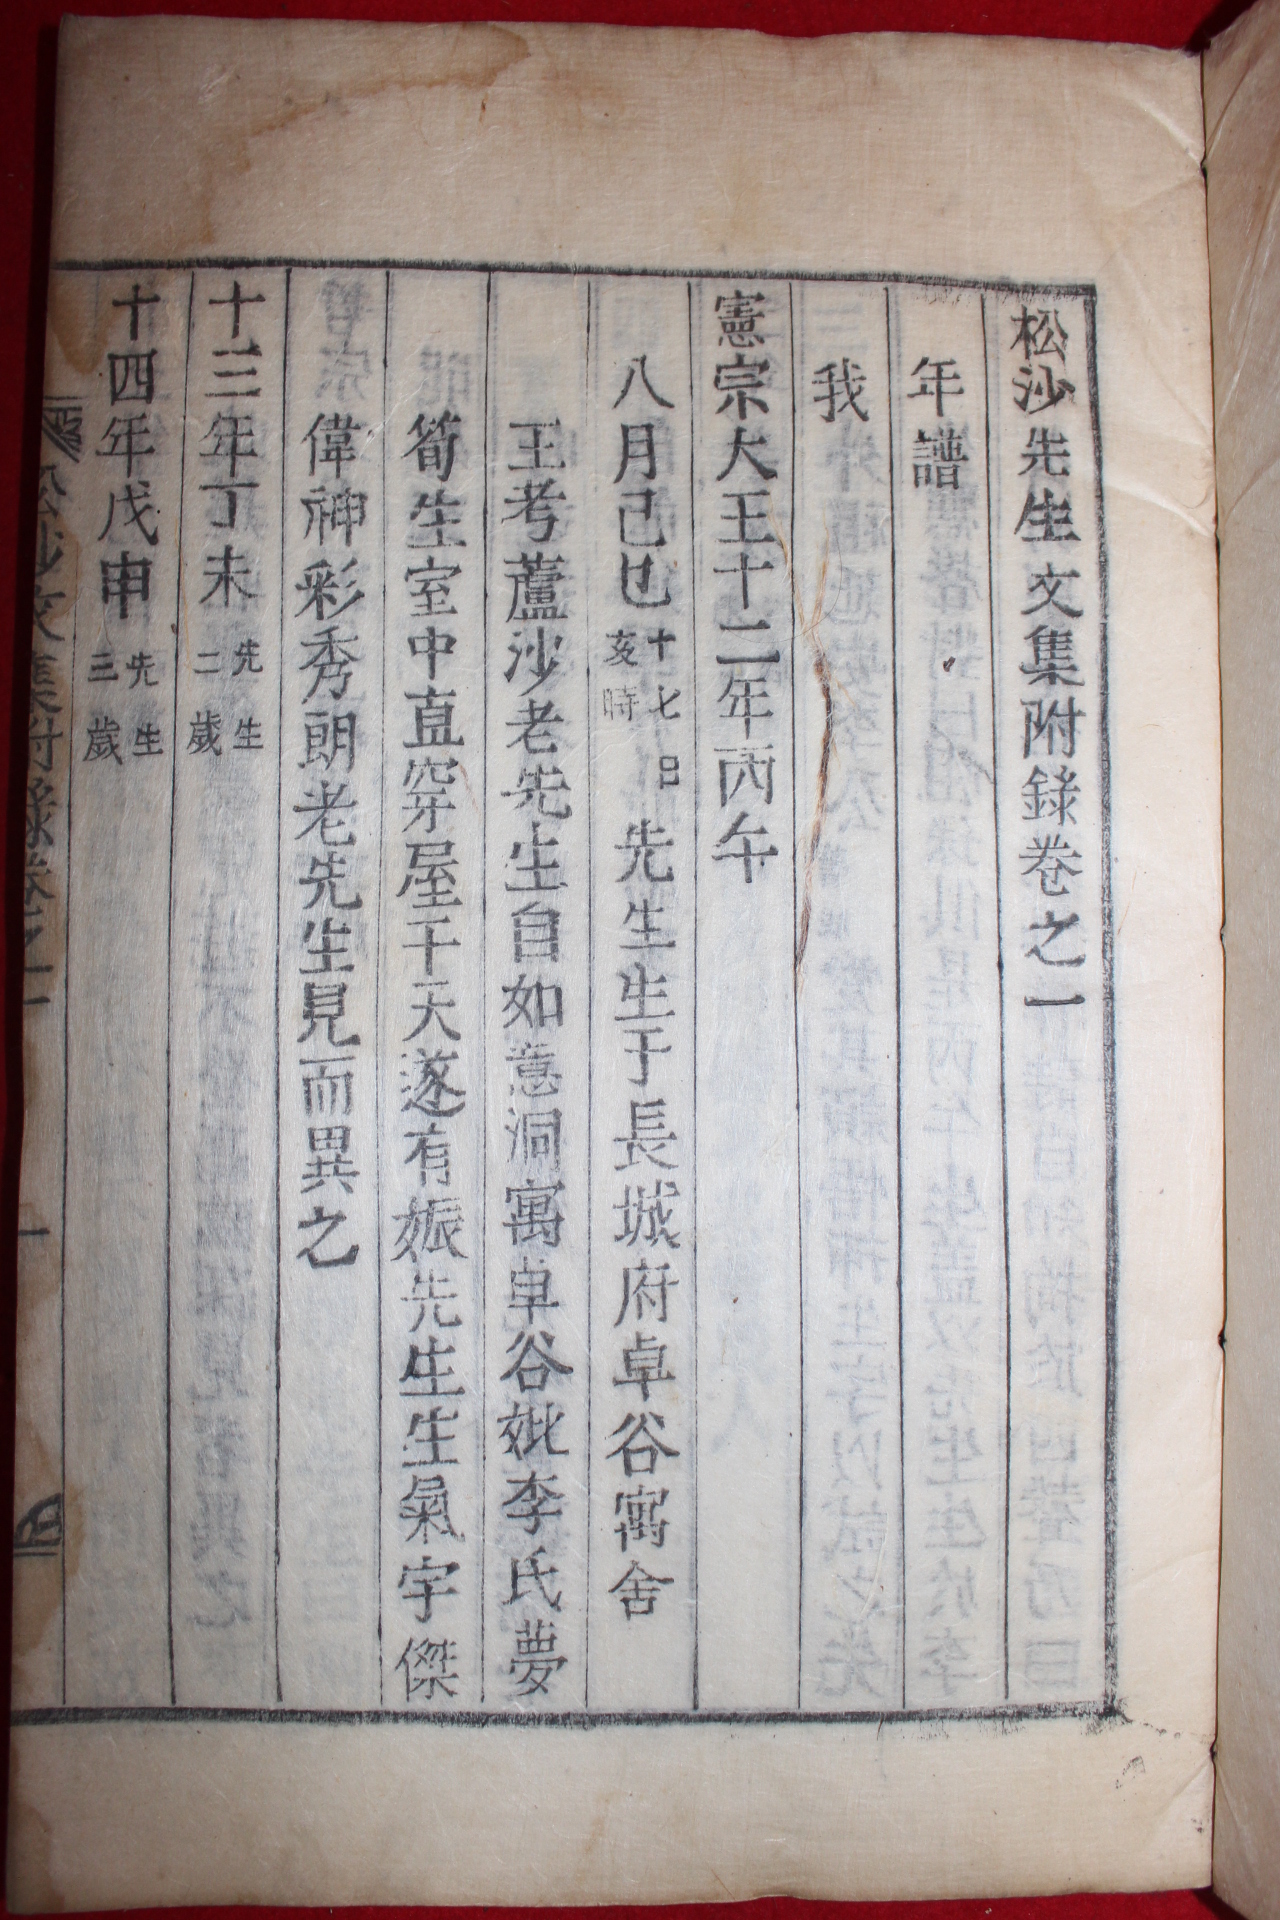 松沙先生文集附錄卷之一
年譜
我
憲宗大王十二年丙午
八月己巳十七日亥時先生生于長城府卓谷寓舍
王考蘆沙老先生自如意洞寓卓谷妣李氏夢
筍生室中直穿屋干天遂有娠先生生氣宇傑
偉神彩秀朗老先生見而異之
十三年丁未先生二歲
十四年戊申先生三歲
松沙文集附錄卷之一
一